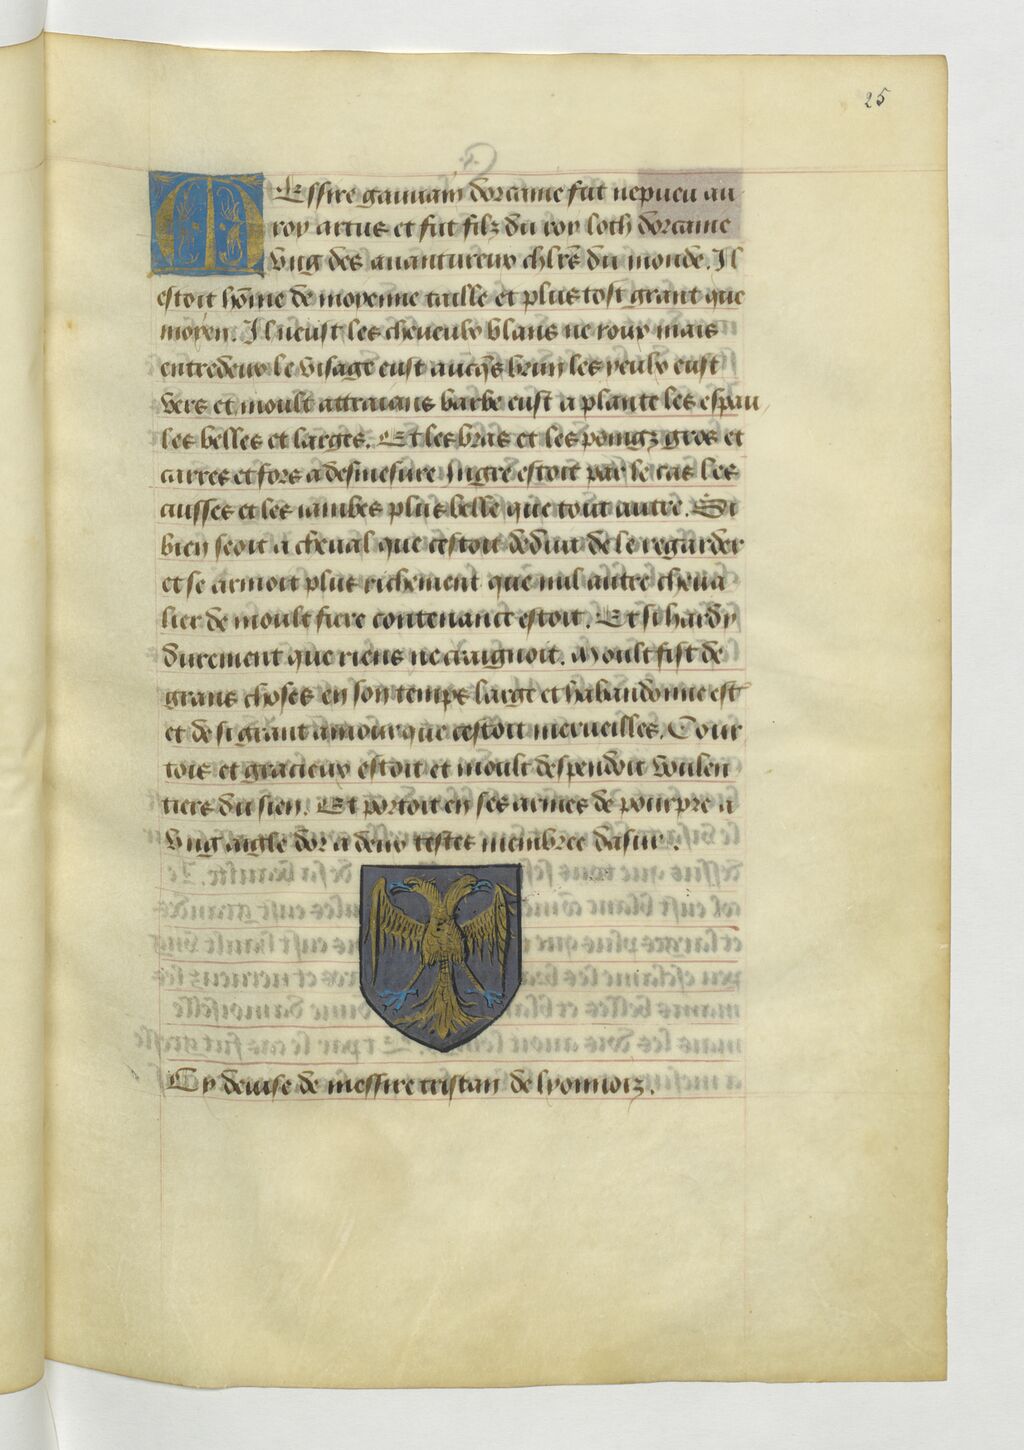 25
MEssire gauuain dorcanie fut nepueu au
roy artus et fut filz du roy loth dorcanie
Vng des auantureux chlrs du monde. Il
estoit home de moyenne taille et plustost grant que
moyen. Il neust les cheueulx blans ne roux mais
entredeux le visage eust aucqs brun les yeulx eust
vers et moult attraians barbe eust a plante les espau
les belles et larges. Et les bras et les poingz gros et
carres et fors a desmesure Jngre estoit par le cas les
cuisses et les iambes plus belle que tout autre. Si
bien seoit a cheual que cestoit deduit de le regarder
et se armoit plus richement que nul autre cheua
lier de moult fiere contenance estoit. Et si hardy
durement que riens ne craignoit. Moult fist de
grans choses en son temps large et habandonne est
et de si grant amour que cestoit merueilles. Cour
tois et gracieux estoit et moult despendoit voulen
tiers du sien. Et portoit en ses armes de pourpre a
Vng aigle dor a deux testes membree dasur.
Cy deuise de messire tristan de lyonnoiz.